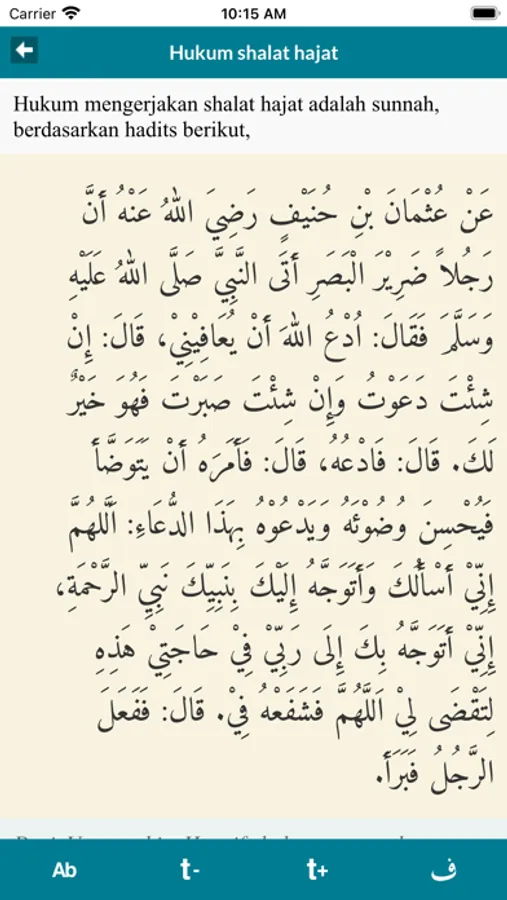 Carrier 10:15 AM
Hukum shalat hajat
Hukum mengerjakan shalat hajat adalah sunnah,
berdasarkan hadits berikut,
عَنْ عُثْمَانَ بْنِ حُنَيْفٍ رَضِيَ اللهُ عَنْهُ أَنَّ
رَجُلاً ضَرِيْرَ الْبَصَرِ أَتَى النَّبِيَّ صَلَّى اللهُ عَلَيْهِ
وَسَلَّمَ فَقَالَ: اُدْعُ اللهَ أَنْ يُعَافِيْنِيْ، قَالَ: إِنْ
شِئْتَ دَعَوْتُ وَإِنْ شِئْتَ صَبَرْتَ فَهُوَ خَيْرٌ
لَكَ. قَالَ: فَادْعُهُ، قَالَ: فَأَمَرَهُ أَنْ يَتَوَضَّأَ
فَيُحْسِنَ وُضُوْئَهُ وَيَدْعُوْهُ بِهَذَا الدُّعَاءِ: اَللَّهُمَّ
إِنِّيْ أَسْأَلُكَ وَأَتَوَجَّهُ إِلَيْكَ بِنَبِيِّكَ نَبِيِّ الرَّحْمَةِ،
إِنِّيْ أَتَوَجَّهُ بِكَ إِلَى رَبِّيْ فِيْ حَاجَتِيْ هَذِهِ
لِتَقْضَى لِيْ اَللَّهُمَّ فَشَفِّعْهُ فِيْ. قَالَ: فَفَعَلَ
الرَّجُلُ فَبَرَأَ.
Ab t- t+ ف